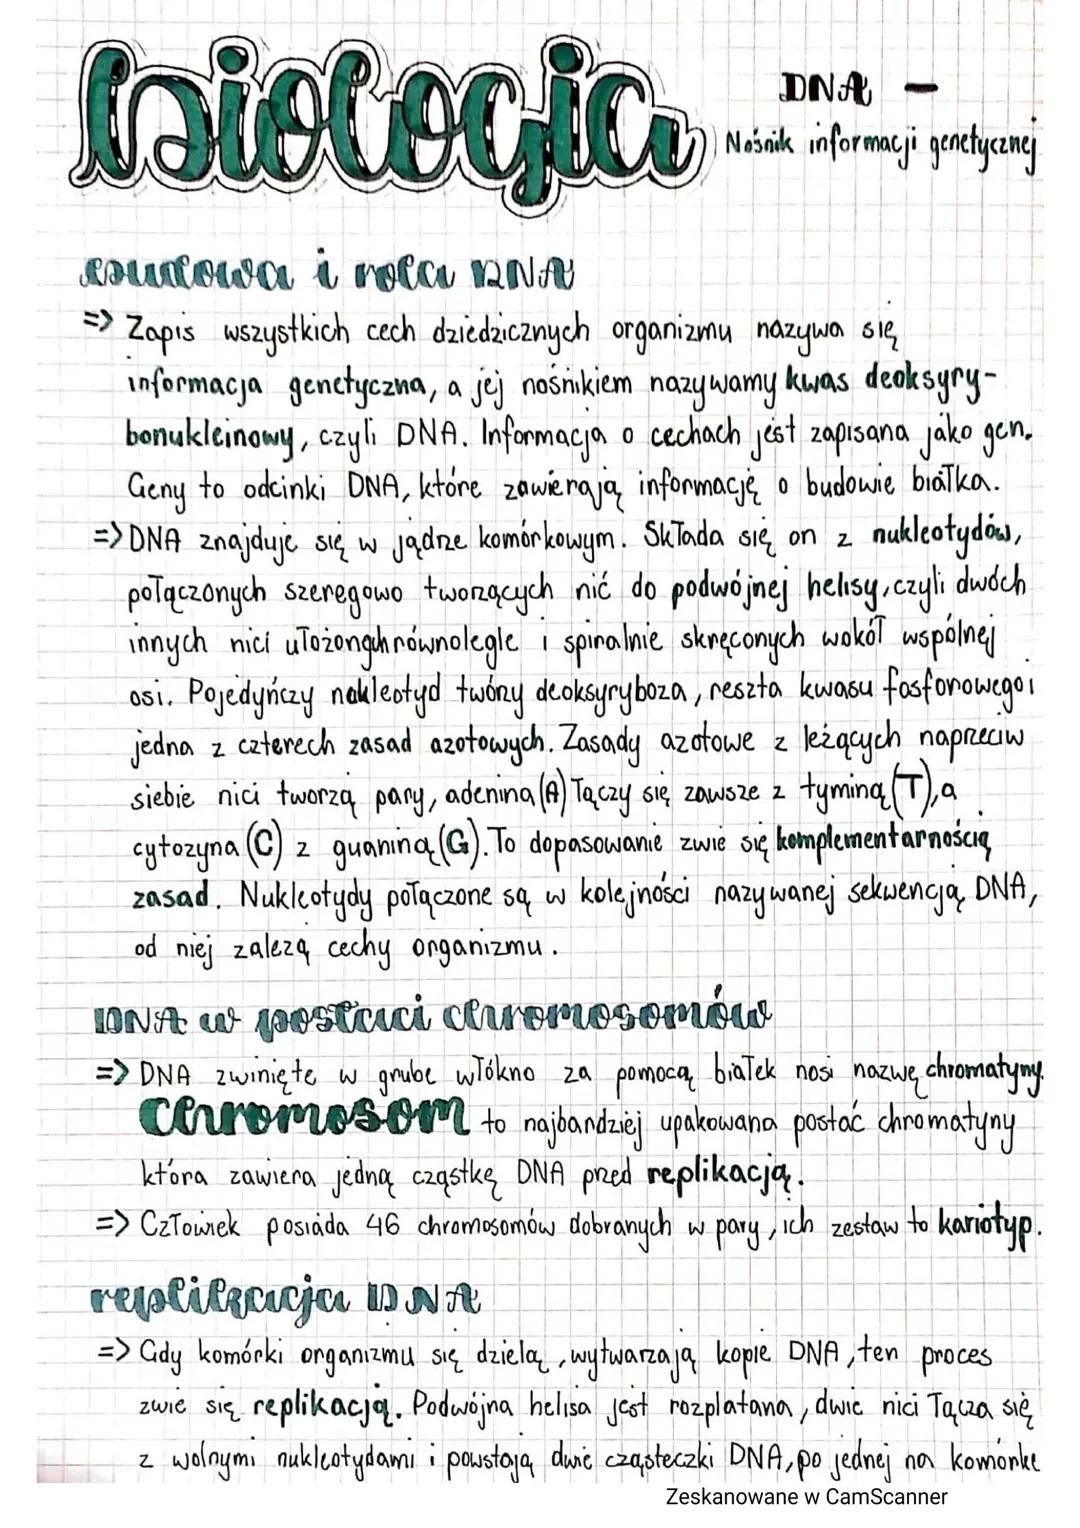 biologia
DNA –
Nośnik informacji genetycznej
budowa i rola DNA
=> Zapis wszystkich cech dziedzicznych organizmu nazywa się
informacja genetyczna, a jej nośnikiem nazywamy kwas deoksyry-
bonukleinowy, czyli DNA. Informacja o cechach jest zapisana jako gen.
Geny to odcinki DNA, które zawierają informację o budowie białka.
=> DNA znajduje się w jądrze komórkowym. Składa się on z nukleotydów,
połączonych szeregowo tworzących nić do podwójnej helisy, czyli dwóch
innych nici ułożongch równolegle i spiralnie skręconych wokół wspólnej
osi. Pojedyńczy nukleotyd twórzy deoksyryboza, reszta kwasu fosforowego i
jedna z czterech zasad azotowych. Zasady azotowe z leżących naprzeciw
siebie nici tworzą pary, adenina (A) łączy się zawsze z tyminą (T), a
cytozyna (C) z guaniną (G). To dopasowanie zwie się komplementarnością
zasad. Nukleotydy połączone są w kolejności nazywanej sekwencją DNA,
od niej zalezą cechy organizmu.
DNA w postaci chromosomów
=> DNA zwinięte w grube włókno za pomocą białek nosi nazwę chromatyny.
Chromosom to najbardziej upakowana postać chromatyny
która zawiera jedną cząstkę DNA przed replikacją.
=> Człowiek posiada 46 chromosomów dobranych w pary, ich zestaw to kariotyp.
replikacja DNA
=> Gdy komórki organizmu się dzielą, wytwarzają kopie DNA, ten proces
zwie się replikacją. Podwójna helisa jest rozplatana, dwie nici łącza się
z wolnymi nukleotydami i powstają dwie cząsteczki DNA, po jednej na komórkę
Zeskanowane w CamScanner